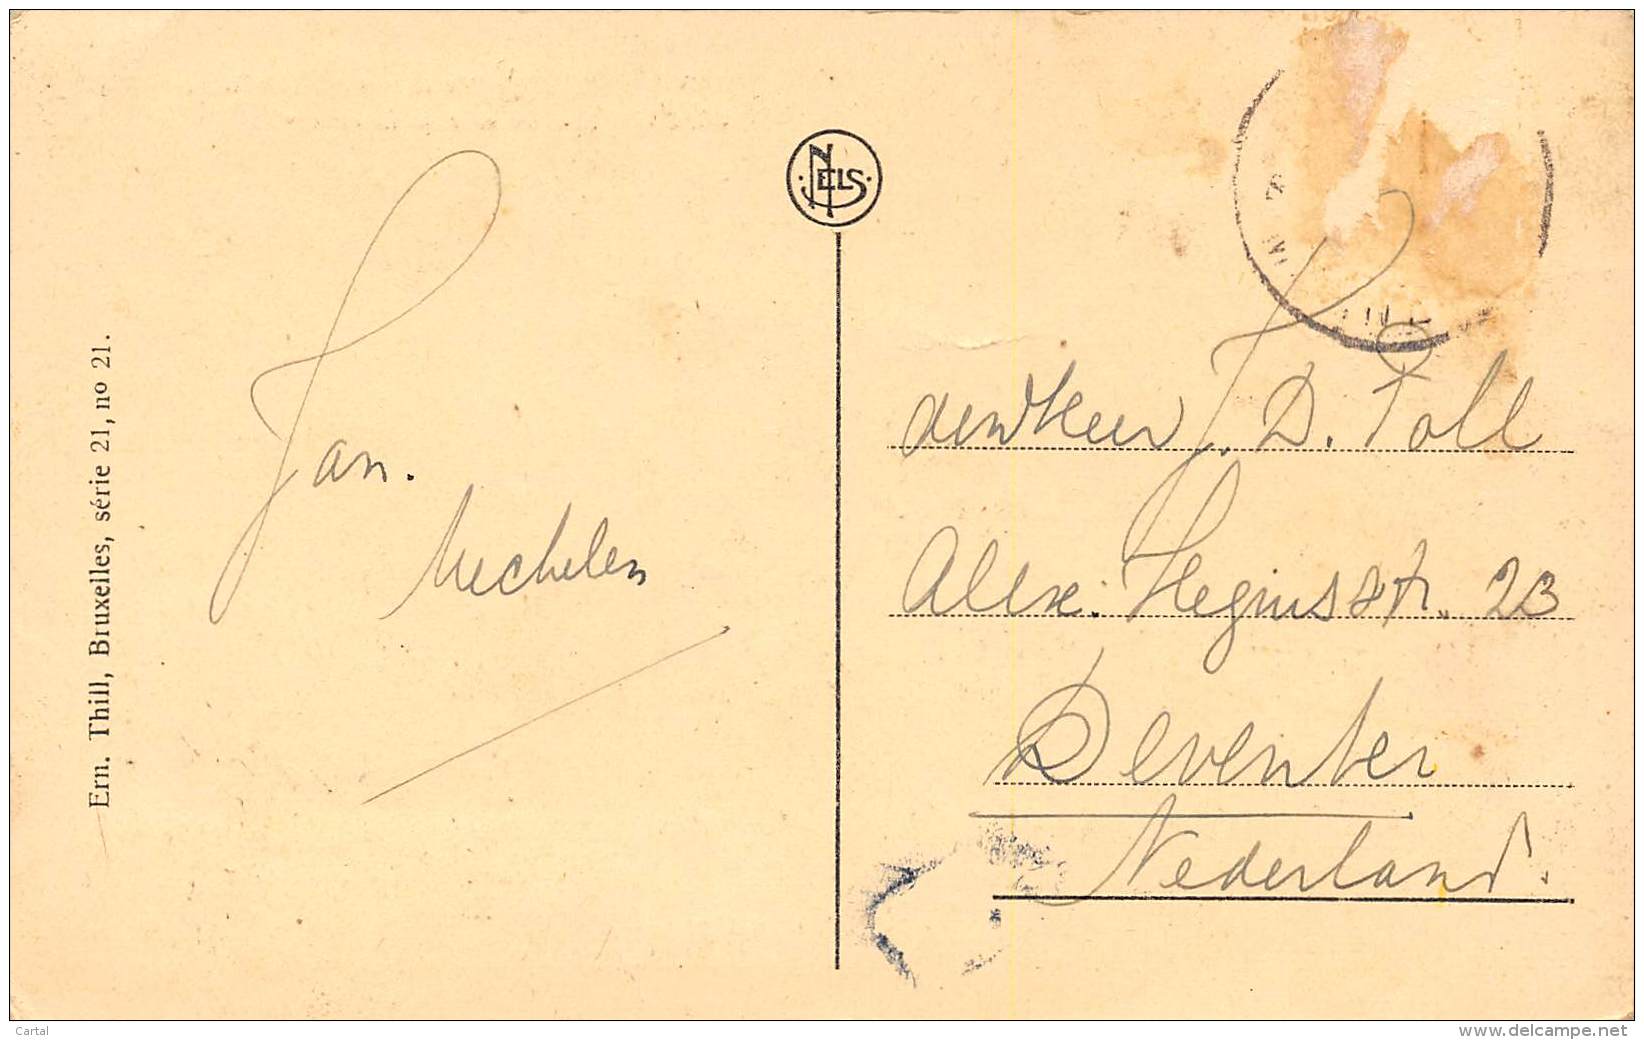 Ern. Thill, Bruxelles, série 21, no 21.
NELS
Jan.
Mechelen
den Heer J. D. Poll
Alex. Hegiusstr. 23
Deventer
Nederland.
Cartal
www.delcampe.net